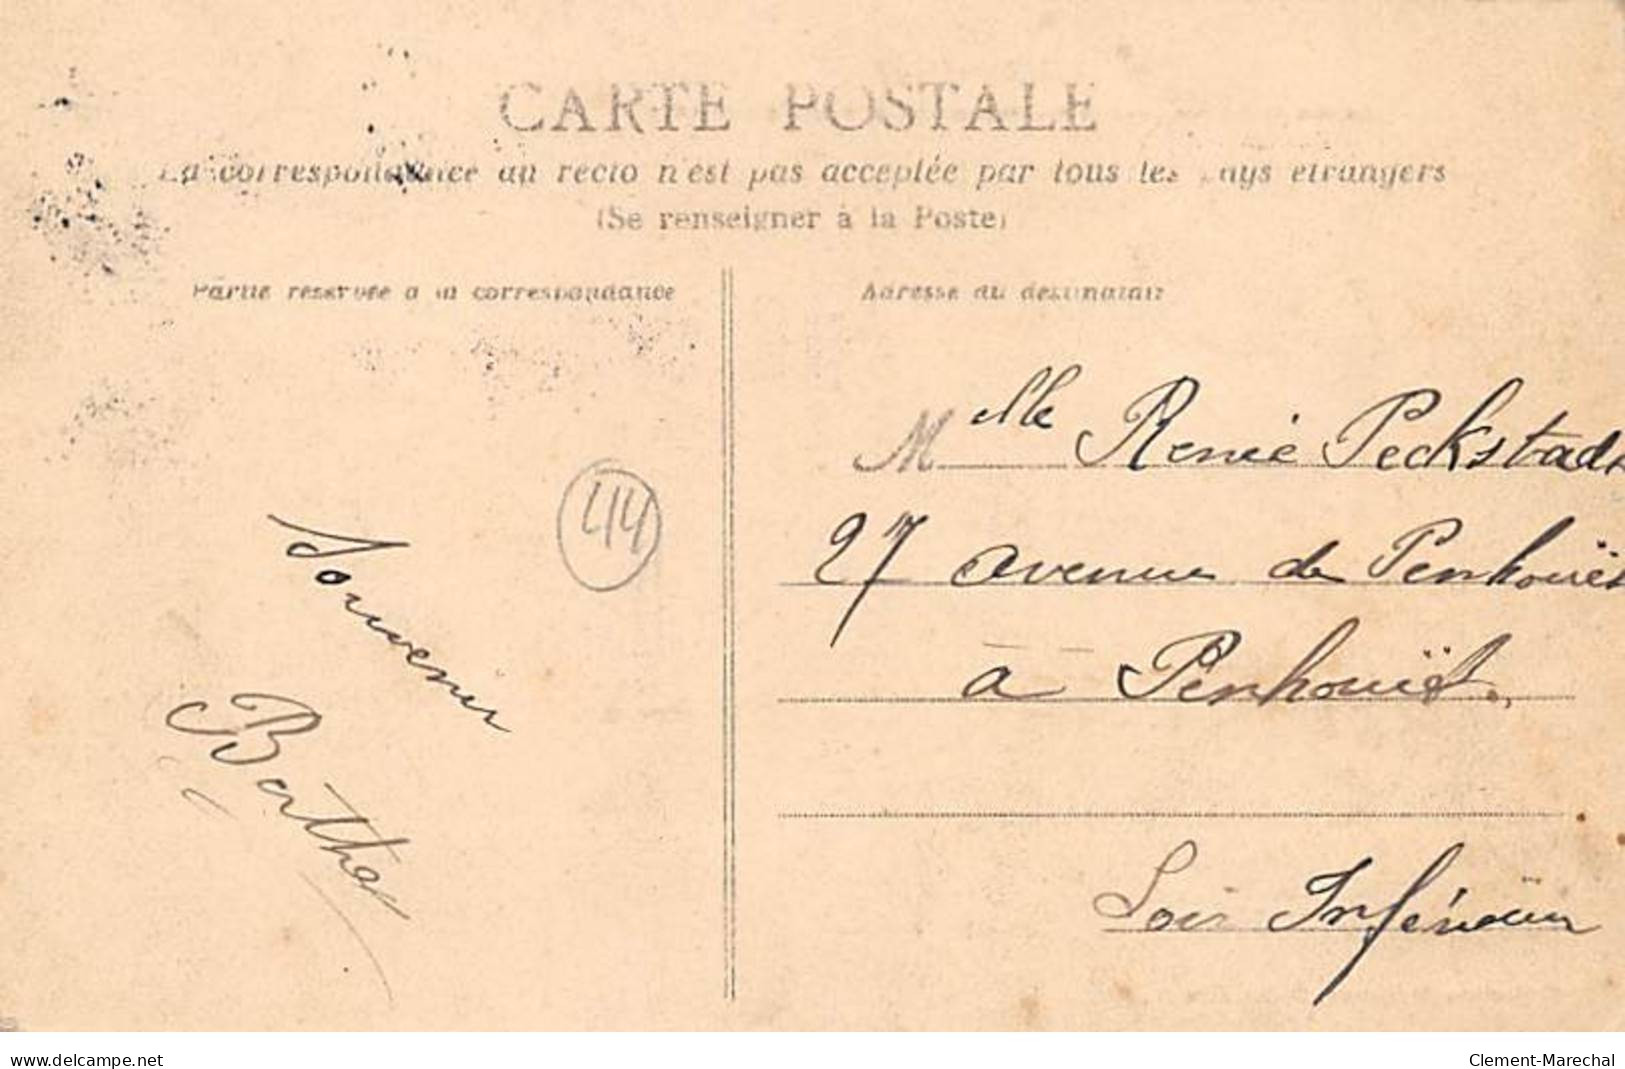 CARTE POSTALE
La correspondance au recto n'est pas acceptée par tous les pays étrangers
(Se renseigner à la Poste)
Partie réservée à la correspondance
Adresse du destinataire
Souvenir
Berthe
44
Melle Renée Peckstadt
27 avenue de Penhouët
à Penhouët.
Loire Inférieure
www.delcampe.net
Clement-Marechal